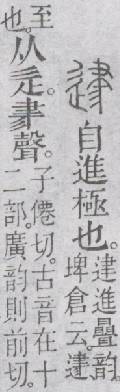 䢖自進極也。
䢖進疊韵。
埤倉云。䢖
至
也。
从辵。𦘔聲。
子僊切。古音在十
二部。廣韵則前切。